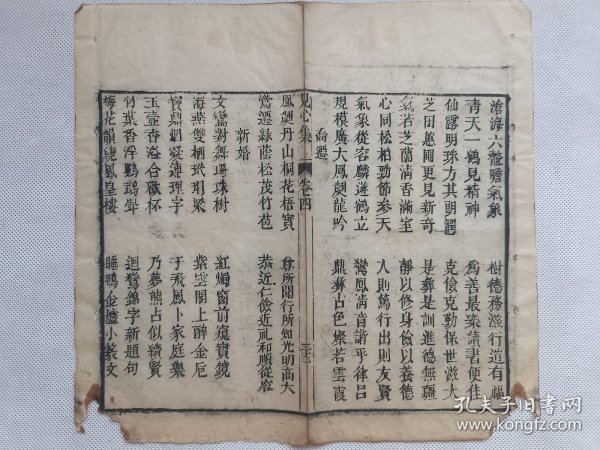 滄海六鰲瞻氣象 樹德務滋行道有福
青天一鶴見精神 為善最樂讀書便佳
仙露明珠方其朗潤 克儉克勤保世滋大
芝田蕙圃更見新奇 是彝是訓進德無疆
氣若芝蘭清香滿室 靜以修身儉以養德
心同松柏勁節參天 入則篤行出則友賢
氣象從容麟遊鶴立 鸞鳳清音諧乎律呂
規模廣大鳳翽龍吟 鼎彝古色燦若雲霞
喬遷
見心集 卷四 三十三
鳳翽丹山桐花梧實 尊所聞行所知光明高大
鶯遷綠蔭松茂竹苞 恭近仁儉近禮和順從容
新婚
文鸞對舞珠樹 紅燭窗前窺寶鏡
海燕雙棲玳瑁梁 紫雲閣上醉金卮
寶鼎焰凝連理字 于飛鳳卜家庭樂
玉壺香溢合歡杯 乃夢熊占似續賢
竹葉香浮鸚鵡盞 迴鸞錦字新題句
梅花韻繞鳳皇樓 睡鴨金爐小篆文
孔夫子旧书网